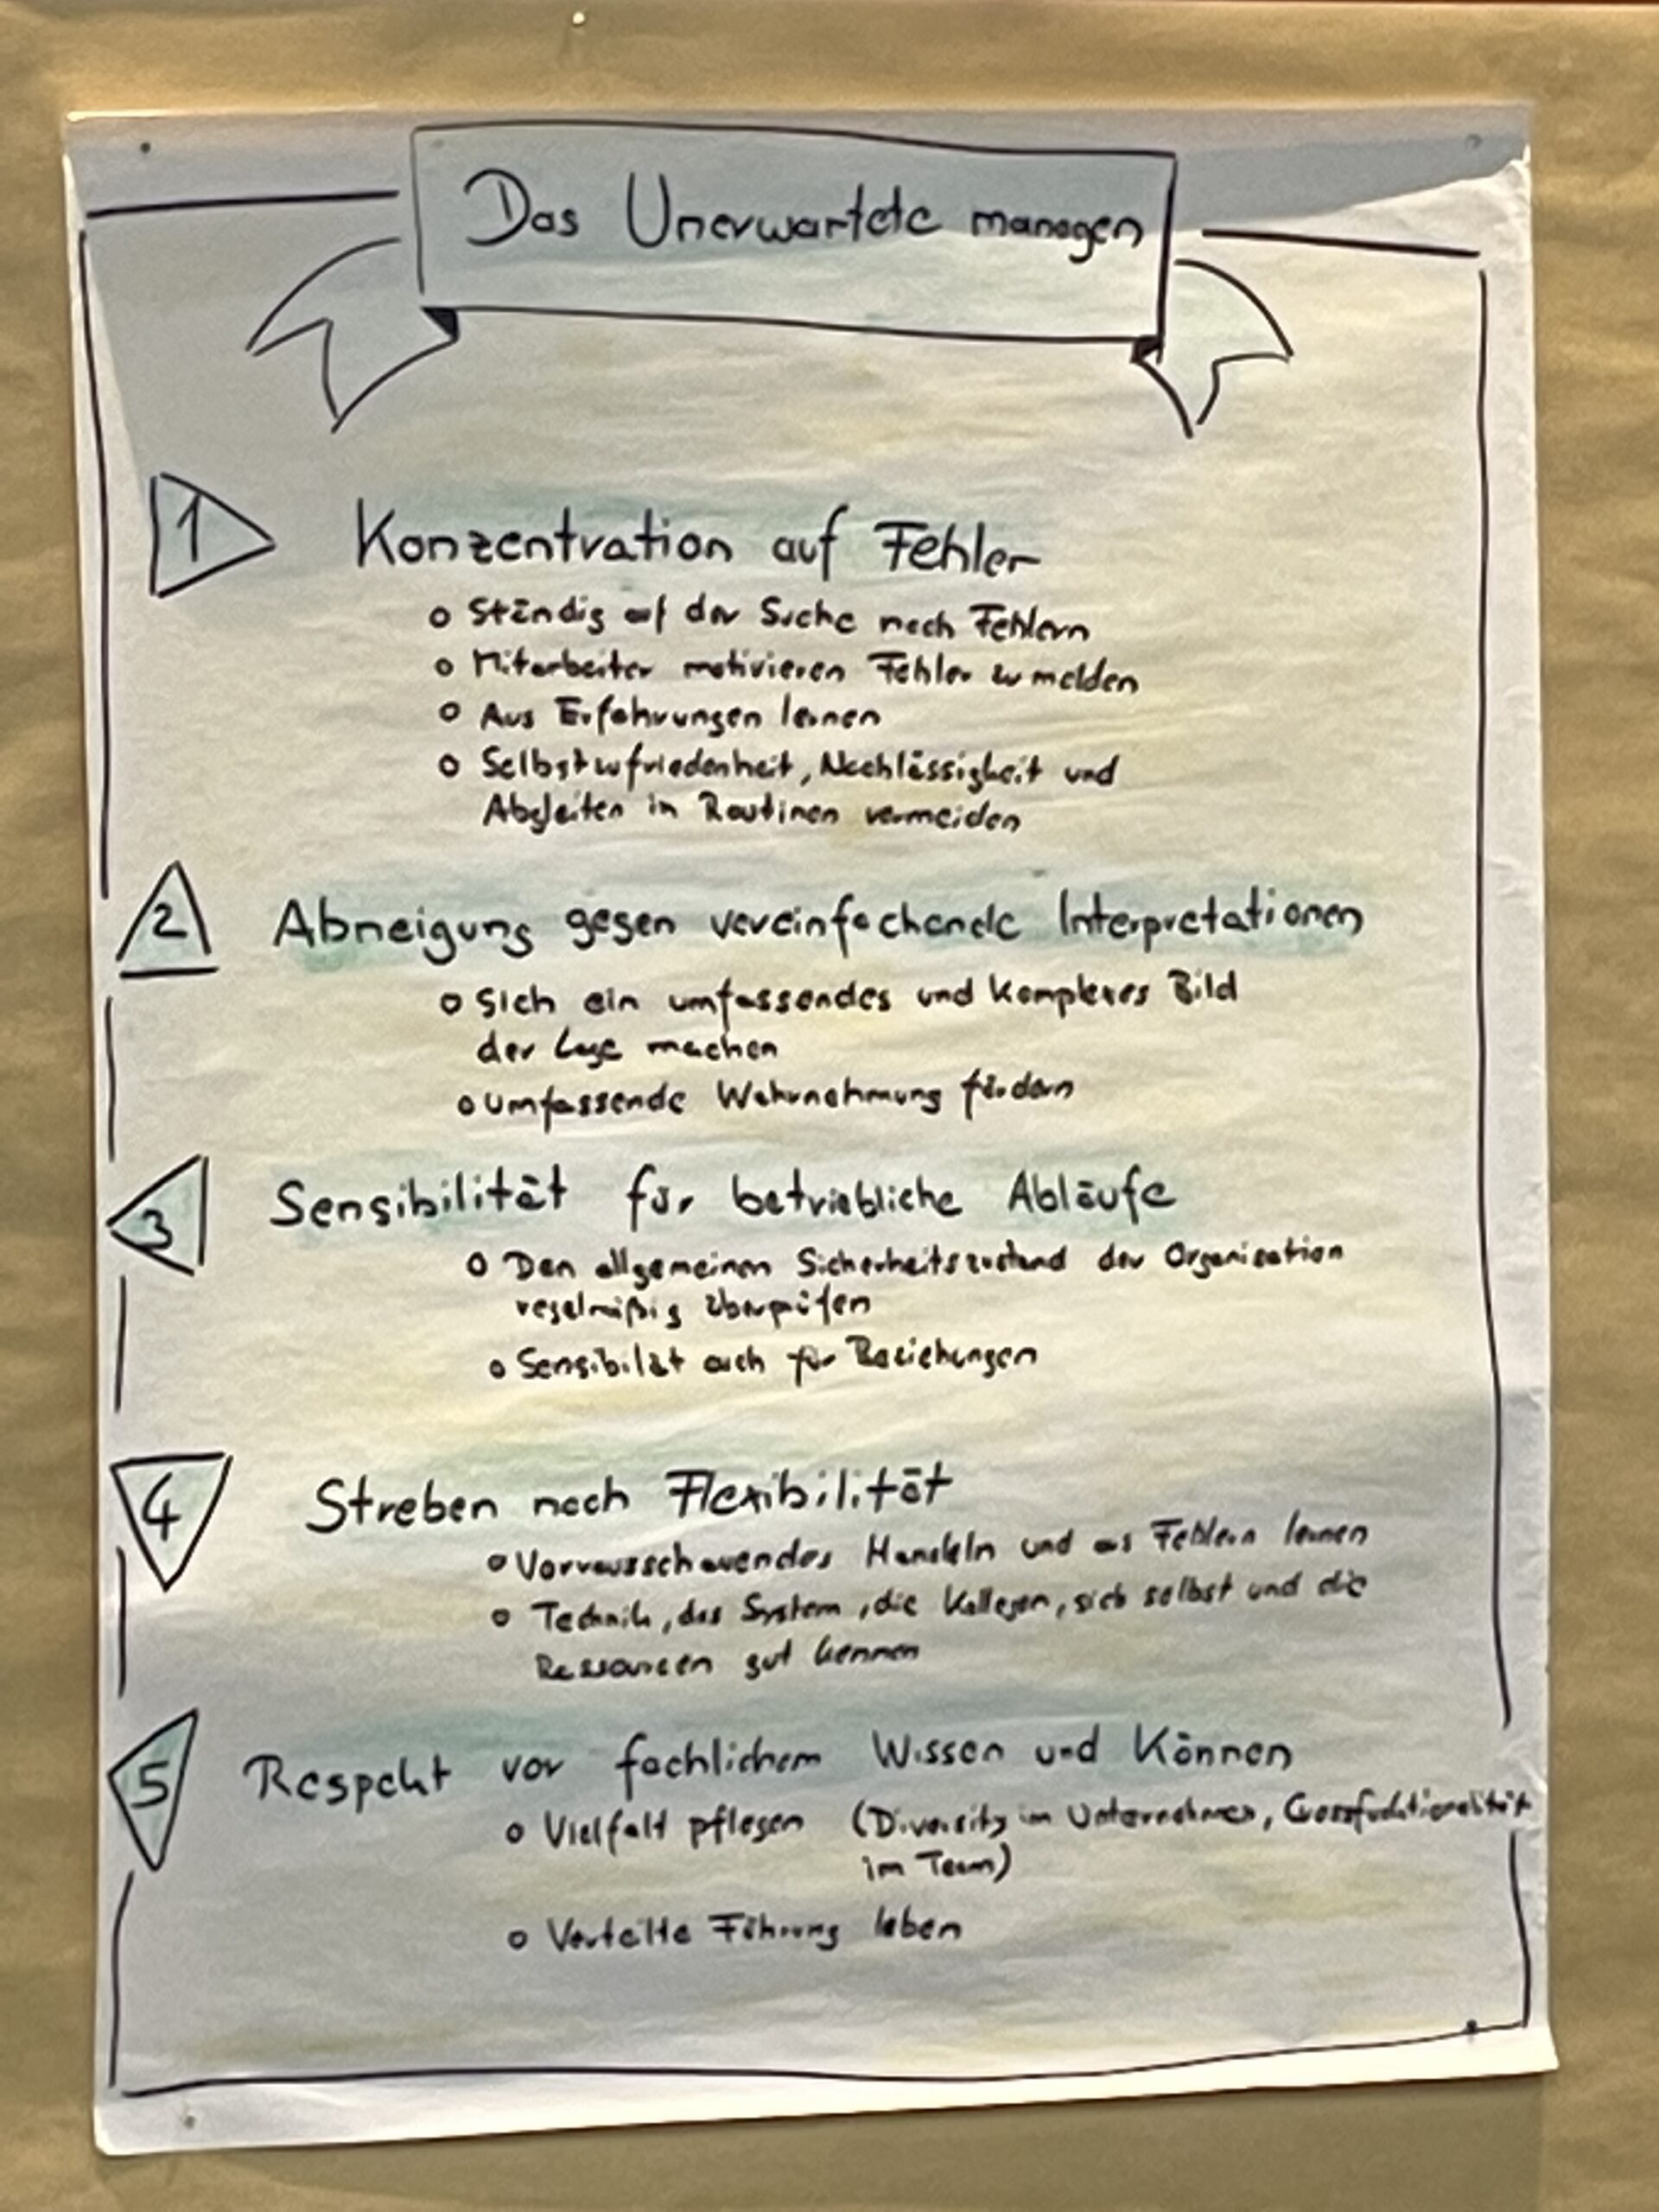 Das Unerwartete managen
1
Konzentration auf Fehler
Ständig auf der Suche nach Fehlern
Mitarbeiter motivieren Fehler zu melden
Aus Erfahrungen lernen
Selbstzufriedenheit, Nachlässigkeit und
Abgleiten in Routinen vermeiden
2
Abneigung gegen vereinfachende Interpretationen
Sich ein umfassendes und komplexes Bild
der Lage machen
umfassende Wahrnehmung fördern
3
Sensibilität für betriebliche Abläufe
Den allgemeinen Sicherheitszustand der Organisation
regelmäßig überprüfen
Sensibilät auch für Beziehungen
4
Streben nach Flexibilität
Vorrausschauendes Handeln und aus Fehlern lernen
Technik, das System, die Kollegen, sich selbst und die
Ressourcen gut kennen
5
Respekt vor fachlichem Wissen und Können
Vielfalt pflegen (Diversity im Unternehmen,
im Team)
Verteilte Führung leben